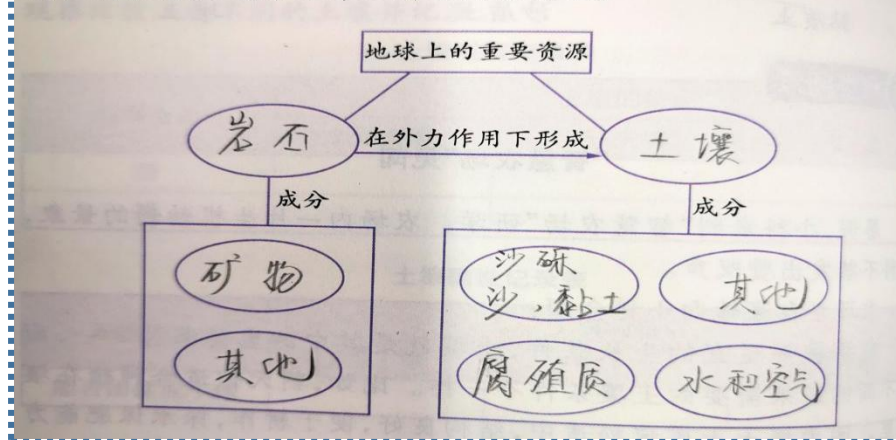 地球上的重要资源
岩石
在外力作用下形成
土壤
成分
成分
矿物
沙砾
沙,黏土
其他
其他
腐殖质
水和空气